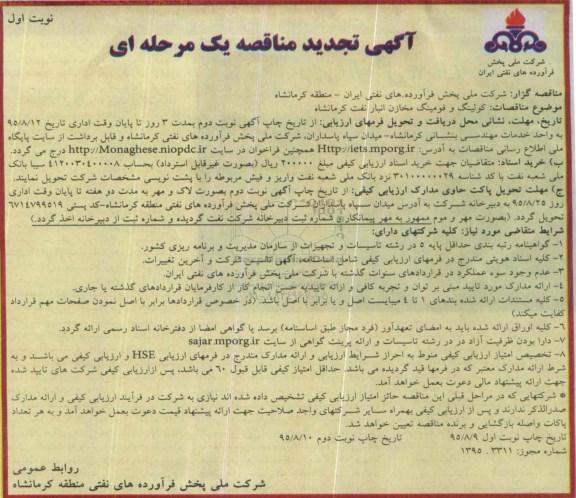 نوبت اول
آگهی تجدید مناقصه یک مرحله ای
شرکت ملی پخش
فرآورده های نفتی ایران
مناقصه گزار: شرکت ملی پخش فرآورده.های نفتی ایران - منطقه کرمانشاه
موضوع مناقصات: کولینگ و فومینگ مخازن انبار نفت کرمانشاه
تاریخ، مهلت، نشانی محل دریافت و تحویل فرمهای ارزیابی: از تاریخ چاپ آگهی نوبت دوم بمدت ۳ روز تا پایان وقت اداری تاریخ ۹۵/۸/۱۲
به واحد خدمات مهندسی بنشانی کرمانشاه-میدان سپاه پاسداران، شرکت ملی پخش فرآورده های نفتی کرمانشاه و قابل برداشت از سایت پایگاه
ملی اطلاع رسانی مناقصات به آدرس: Http://iets.mporg.ir همچنین فراخوان در سایت http://Monaghese.niopdc.ir درج می گردد.
ب) خرید اسناد: متقاضیان جهت خرید اسناد ارزیابی کیفی مبلغ ۲۰۰۰۰۰ ریال (بصورت غیرقابل استرداد) بحساب ۴۱۲۰۰۳۰۴۰۰۰۰۸ سیبا بانک
ملی شعبه نفت با کد شناسه ۳۰۱۰۰۰۰۰۰۰۲۹ نزد بانک ملی شعبه نفت واریز و فیش مربوطه را با پشت نویسی مشخصات شرکت تحویل نمایند.
ج) مهلت تحویل پاکت حاوی مدارک ارزیابی کیفی: از تاریخ چاپ آگهی نوبت دوم بصورت لاک و مهر به مدت دو هفته تا پایان وقت اداری
روز ۹۵/۸/۲۵ به دبیرخانه شرکت به آدرس میدان سپاه پاسداران شرکت ملی پخش فرآورده های نفتی منطقه کرمانشاه-کد پستی ۶۷۱۴۷۹۹۵۱۹
تحویل گردد. (بصورت مهر و موم ممهور به مهر پیمانکار و شماره ثبت دبیرخانه شرکت نفت گردیده و شماره ثبت از دبیرخانه اخذ گردد.)
شرایط متقاضی مورد نیاز: کلیه شرکتهای دارای:
۱- گواهینامه رتبه بندی حداقل پایه ۵ در رشته تاسیسات و تجهیزات از سازمان مدیریت و برنامه ریزی کشور.
۲- کلیه اسناد هویتی مندرج در فرمهای ارزیابی کیفی شامل اساسنامه، آگهی تاسیس شرکت و آخرین تغییرات.
۳- عدم وجود سوء عملکرد در قراردادهای سنوات گذشته با شرکت ملی پخش فرآورده های نفتی ایران.
۴- ارائه مدارک مورد تایید مبنی بر توان و تجربه کافی و ارائه تاییدیه حسن انجام کار از کارفرمایان قراردادهای گذشته یا جاری.
۵- کلیه مستندات ارائه شده بندهای ۱ تا ۴ میبایست اصل و یا برابر با اصل باشد. (در خصوص قراردادها برابر با اصل نمودن صفحات مهم قرارداد
کفایت میکند)
۶- کلیه اوراق ارائه شده باید به امضای تعهدآور (فرد مجاز طبق اساسنامه) برسد یا گواهی امضا از دفترخانه اسناد رسمی ارائه گردد.
۷- دارا بودن ظرفیت آزاد در در رشته تاسیسات و ارائه پرینت گواهی از سایت sajar.mporg.ir
۸- تخصیص امتیاز ارزیابی کیفی منوط به احراز شرایط ارزیابی و ارائه مدارک مندرج در فرمهای ارزیابی HSE و ارزیابی کیفی می باشد و به
شرط ارائه مدارک معتبر که در فرمها قید گردیده می باشد. حداقل امتیاز کیفی قابل قبول ۶۰ می باشد، پس ازارزیابی کیفی شرکت های تایید شده
جهت ارائه پیشنهاد مالی دعوت بعمل خواهد آمد.
* شرکتهایی که در مراحل قبلی این مناقصه حائز امتیاز ارزیابی کیفی تشخیص داده شده اند نیازی به شرکت در فرآیند ارزیابی کیفی و ارائه مدارک
صدرالذکر ندارند و پس از ارزیابی کیفی بهمراه سایر شرکتهای واجد صلاحیت جهت ارائه پیشنهاد قیمت دعوت بعمل خواهد آمد و به هر تعداد
پاکات واصله بازگشایی و برنده مناقصه تعیین خواهد شد.
تاریخ چاپ نوبت اول ۹۵/۸/۹ تاریخ چاپ نوبت دوم ۹۵/۸/۱۰
شماره مجوز: ۳۳۱۱ . ۱۳۹۵
روابط عمومی
شرکت ملی پخش فرآورده های نفتی منطقه کرمانشاه